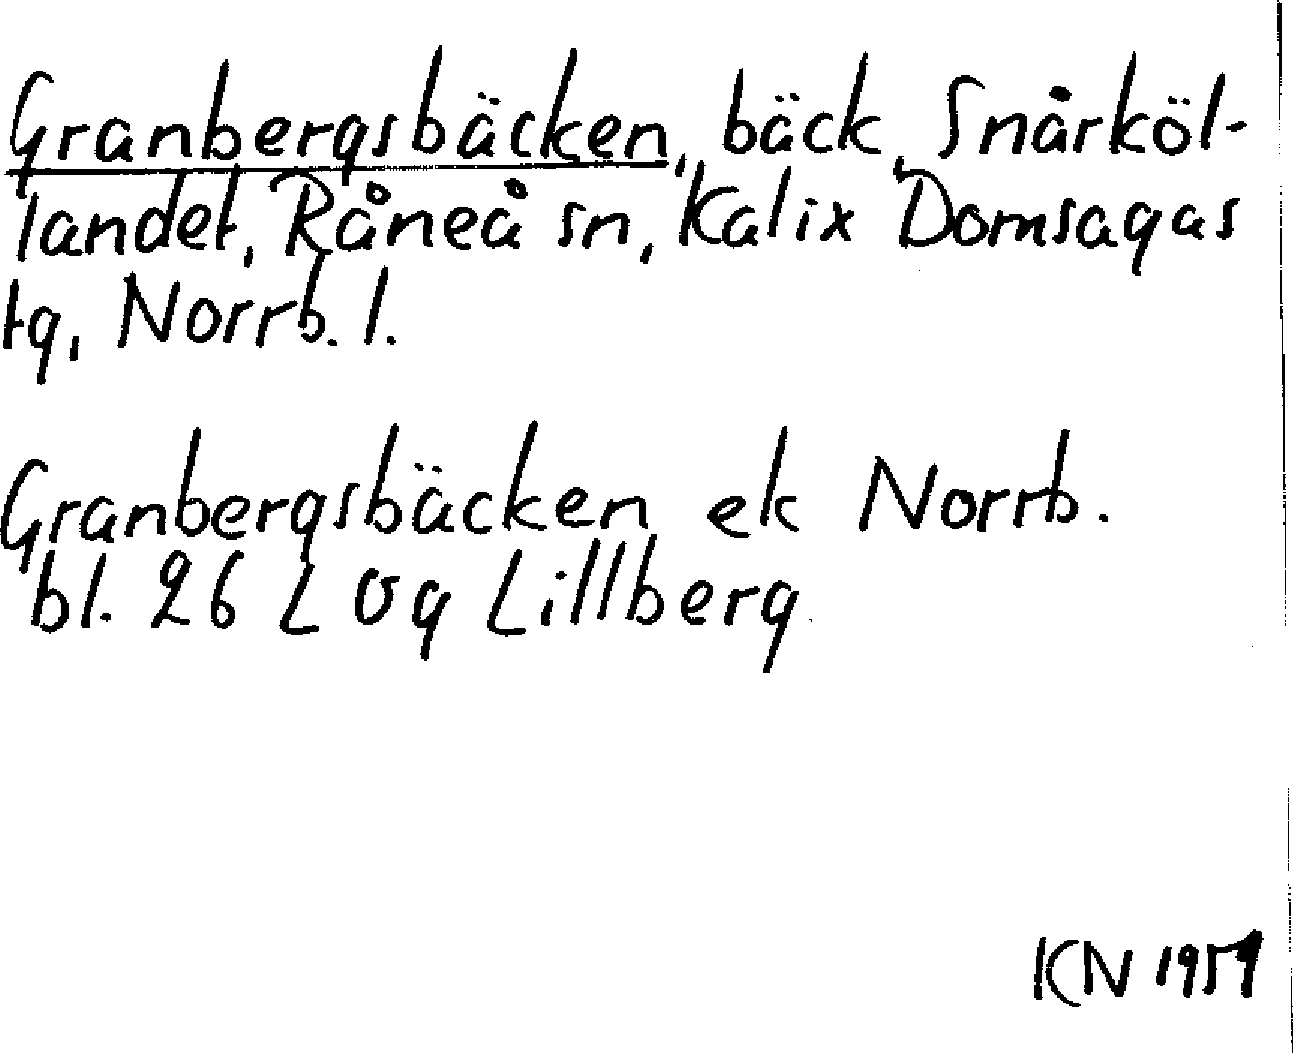 Granbergsbäcken, bäck, Snårköl-
landet, Råneå sn, Kalix Domsagas
tg, Norrb. l.
Granbergsbäcken ek Norrb.
bl. 26 L Og Lillberg
KN